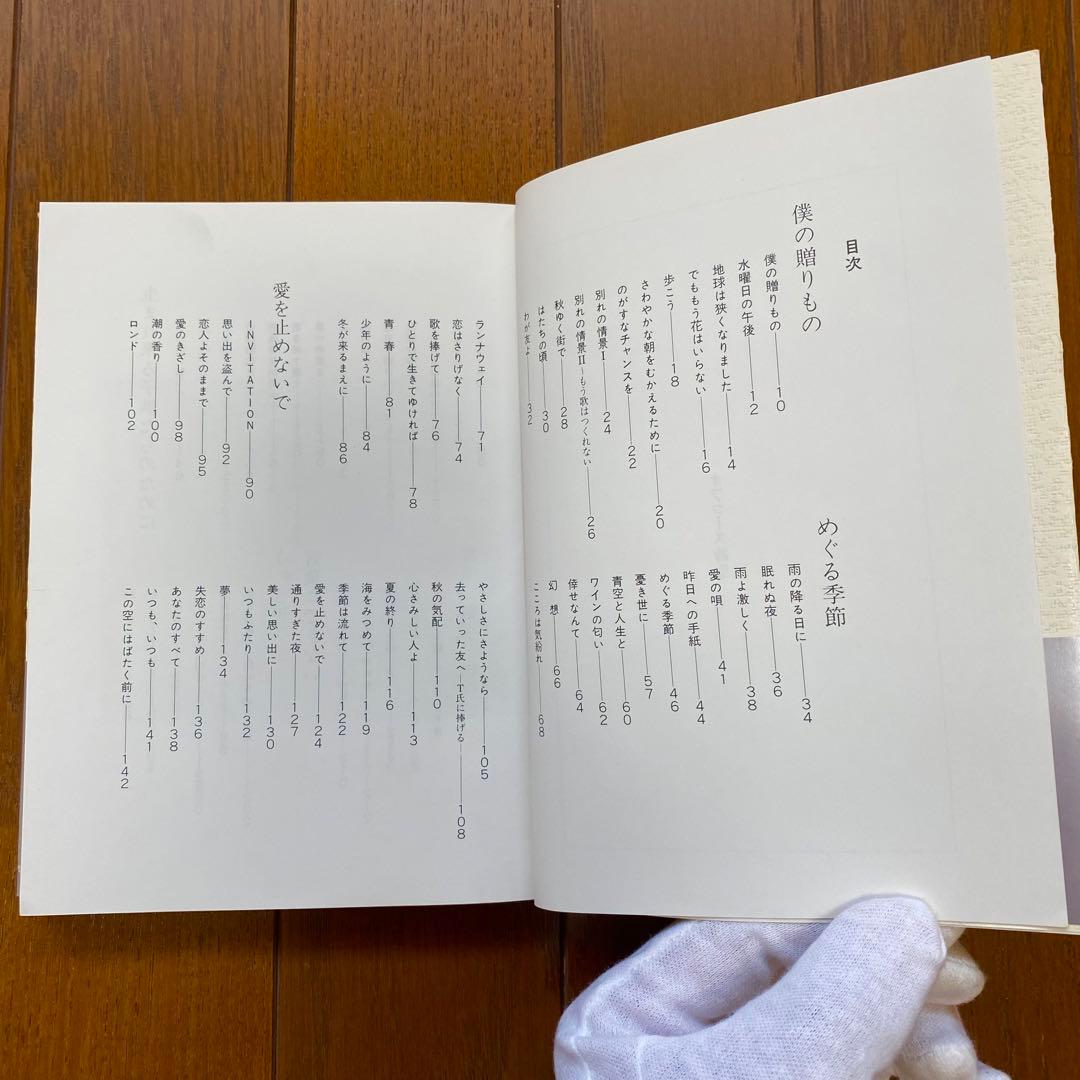 目次
僕の贈りもの
僕の贈りもの――10
水曜日の午後――12
地球は狭くなりました――14
でももう花はいらない――16
歩こう――18
さわやかな朝をむかえるために――20
のがすなチャンスを――22
別れの情景Ⅰ――24
別れの情景Ⅱ～もう歌はつくれない――26
秋ゆく街で――28
はたちの頃――30
わが友よ――32
めぐる季節
雨の降る日に――34
眠れぬ夜――36
雨よ激しく――38
愛の唄――41
昨日への手紙――44
めぐる季節――46
憂き世に――57
青空と人生と――60
ワインの匂い――62
倖せなんて――64
幻想――66
こころは気紛れ――68
ランナウェイ――71
恋はさりげなく――74
歌を捧げて――76
ひとりで生きてゆければ――78
青春――81
少年のように――84
冬が来るまえに――86
愛を止めないで
INVITATION――90
思い出を盗んで――92
恋人よそのままで――95
愛のきざし――98
潮の香り――100
ロンド――102
やさしさにさようなら――105
去っていった友へ―T氏に捧げる――108
秋の気配――110
心さみしい人よ――113
夏の終り――116
海をみつめて――119
季節は流れて――122
愛を止めないで――124
通りすぎた夜――127
美しい思い出に――130
いつもふたり――132
夢――134
失恋のすすめ――136
あなたのすべて――138
いつも、いつも――141
この空にはばたく前に――142